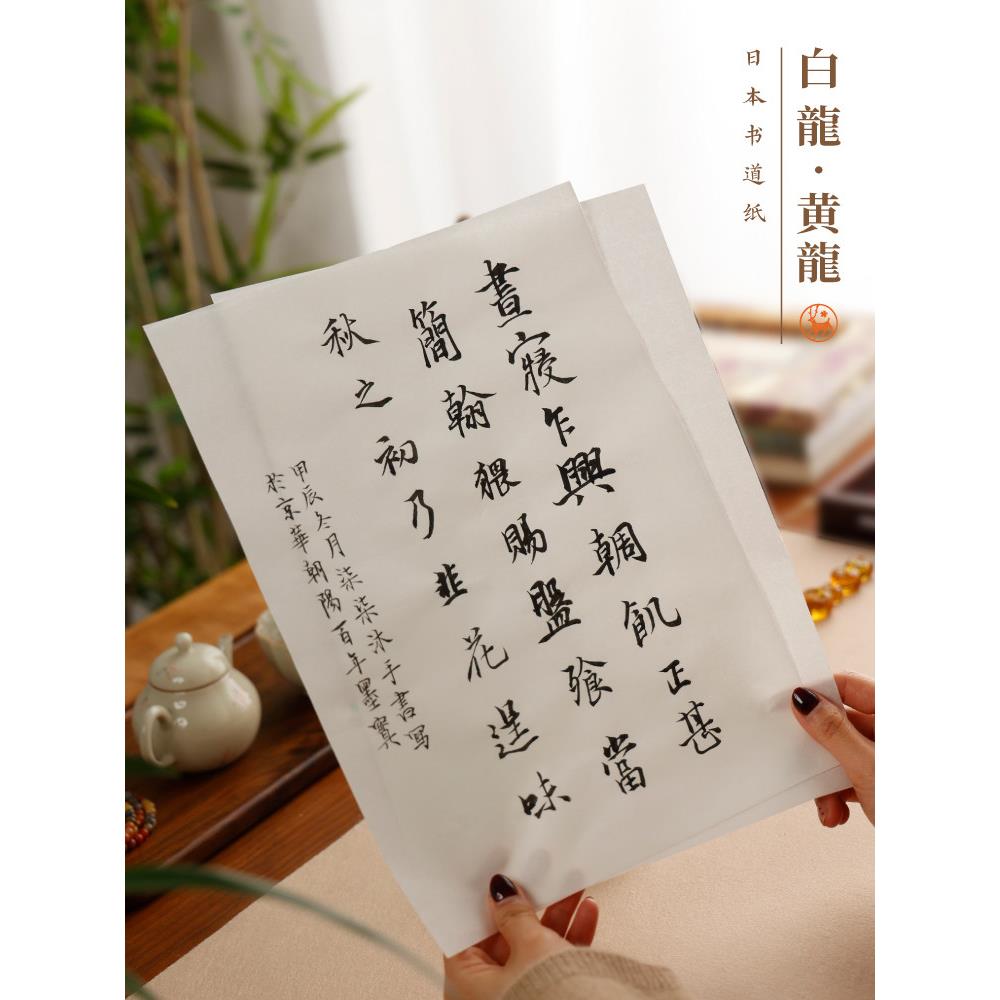 白龍·黄龍
日本书道纸
晝寢乍興朝飢正甚
簡翰猥賜盤飱當
秋之初乃韭花逞味
甲辰冬月柒柒沐手書寫
於京華朝陽百年墨寶